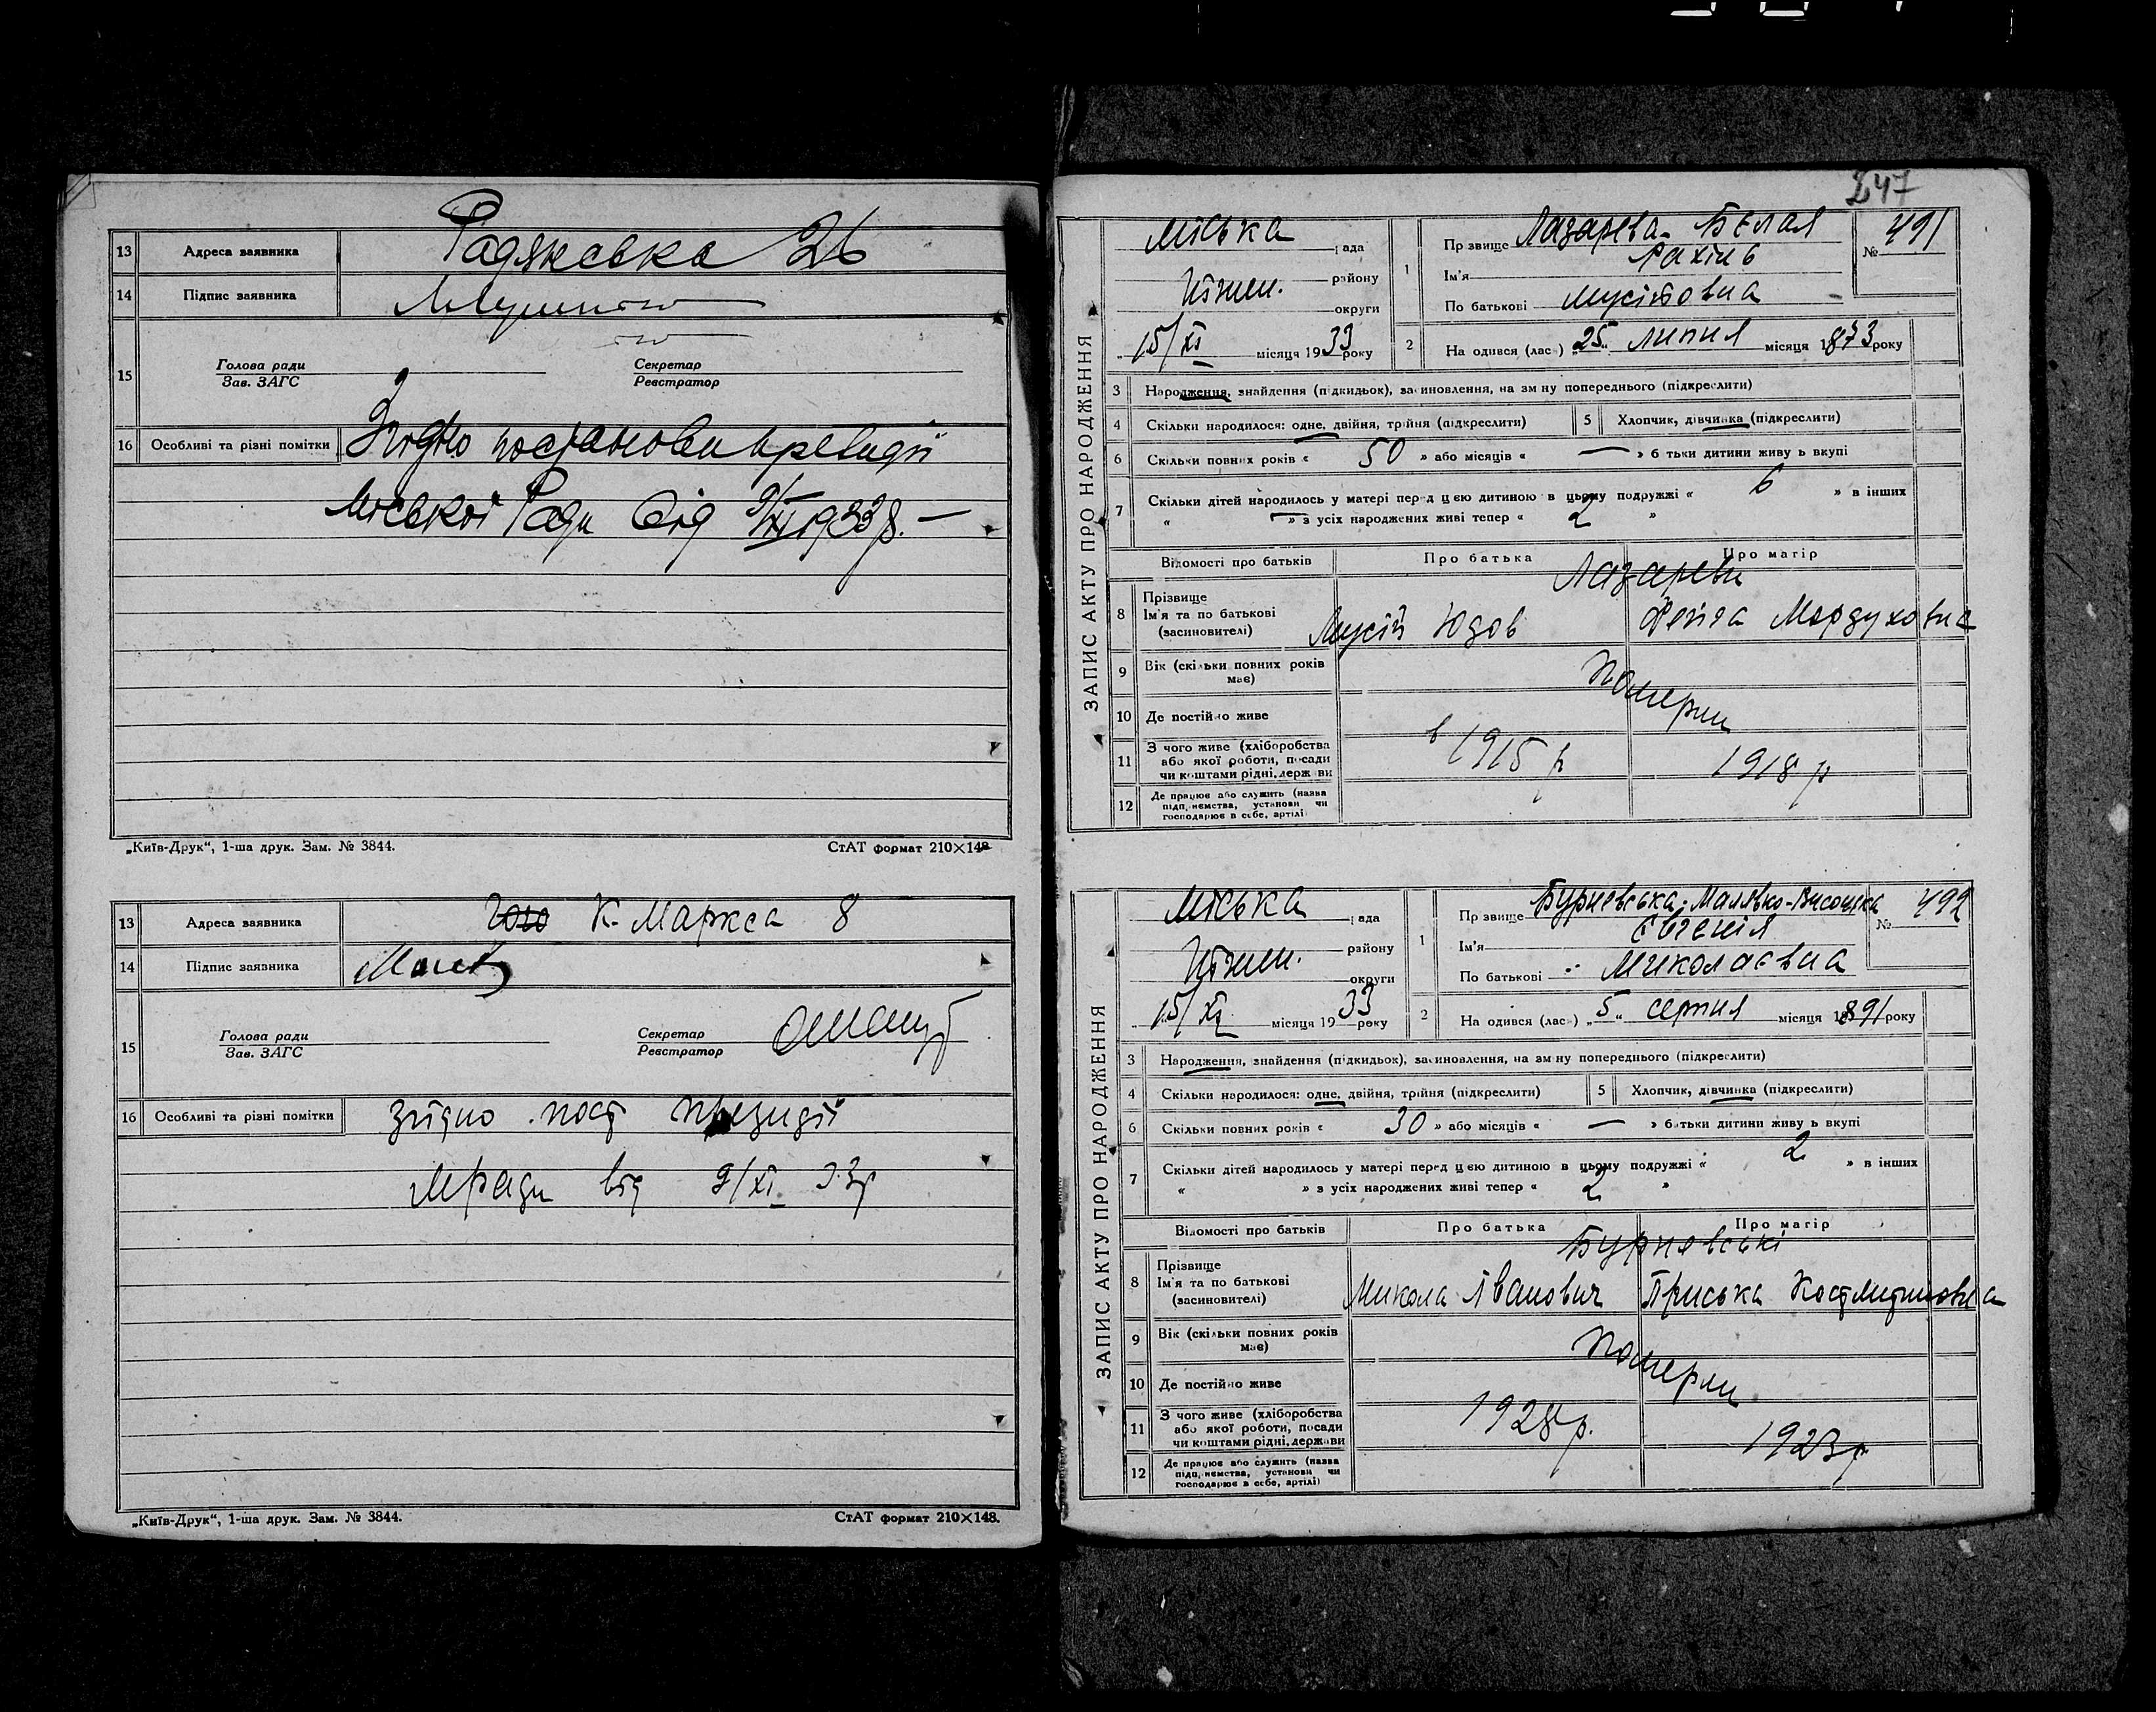 13 Адреса заявника Радянська 26
14 Підпис заявника
15 Голова ради Зав. ЗАГС Секретар Реєстратор
16 Особливі та різні помітки Згідно постанови президії
міської Ради від 9/XI 1933 р. —
„Київ-Друк“, 1-ша друк. Зам. № 3844. СтАТ формат 210×148
13 Адреса заявника К. Маркса 8
14 Підпис заявника
15 Голова ради Зав. ЗАГС Секретар Реєстратор
16 Особливі та різні помітки Згідно пост президії
мради від 9/XI 33р
„Київ-Друк“, 1-ша друк. Зам. № 3844. СтАТ формат 210×148.
247
ЗАПИС АКТУ ПРО НАРОДЖЕННЯ
міська рада
Ніжин. району
округи
15/XI місяця 1933 року
1 Прізвище Лазарева-Бєлая № 491
Ім'я Рахіль
По батькові Мусіївна
2 Народився (лась) „25“ липня місяця 1873 року
3 Народження, знайдення (підкидьок), засиновлення, на зміну попереднього (підкреслити)
4 Скільки народилося: одне, двійня, трійня (підкреслити) 5 Хлопчик, дівчинка (підкреслити)
6 Скільки повних років « 50 » або місяців « — » батьки дитини живуть вкупі
7 Скільки дітей народилось у матері перед цією дитиною в цьому подружжі « 6 » в інших
« — » з усіх народжених живі тепер « 2 »
Відомості про батьків Про батька Про матір
Лазареви
8 Прізвище Ім'я та по батькові (засиновителі) Мусій Юдов Фейга Мордуховна
9 Вік (скільки повних років має)
Померли
10 Де постійно живе
11 З чого живе (хліборобства або якої роботи, посади чи коштами рідні, держави в 1915 р 1918 р
12 Де працює або служить (назва підприємства, установи чи господарює в себе, артілі)
ЗАПИС АКТУ ПРО НАРОДЖЕННЯ
міська рада
Ніжин. району
округи
15/XI місяця 1933 року
1 Прізвище Бурневська-Малявко-Висоцька № 492
Ім'я Євгенія
По батькові Миколаєвна
2 Народився (лась) „5“ серпня місяця 1891 року
3 Народження, знайдення (підкидьок), засиновлення, на зміну попереднього (підкреслити)
4 Скільки народилося: одне, двійня, трійня (підкреслити) 5 Хлопчик, дівчинка (підкреслити)
6 Скільки повних років « 30 » або місяців « — » батьки дитини живуть вкупі
7 Скільки дітей народилось у матері перед цією дитиною в цьому подружжі « 2 » в інших
« » з усіх народжених живі тепер « 2 »
Відомості про батьків Про батька Про матір
Бурневські
8 Прізвище Ім'я та по батькові (засиновителі) Микола Іванович Приська Костянтиновна
9 Вік (скільки повних років має)
Померли
10 Де постійно живе
11 З чого живе (хліборобства або якої роботи, посади чи коштами рідні, держави 1928р. 1923р
12 Де працює або служить (назва підприємства, установи чи господарює в себе, артілі)